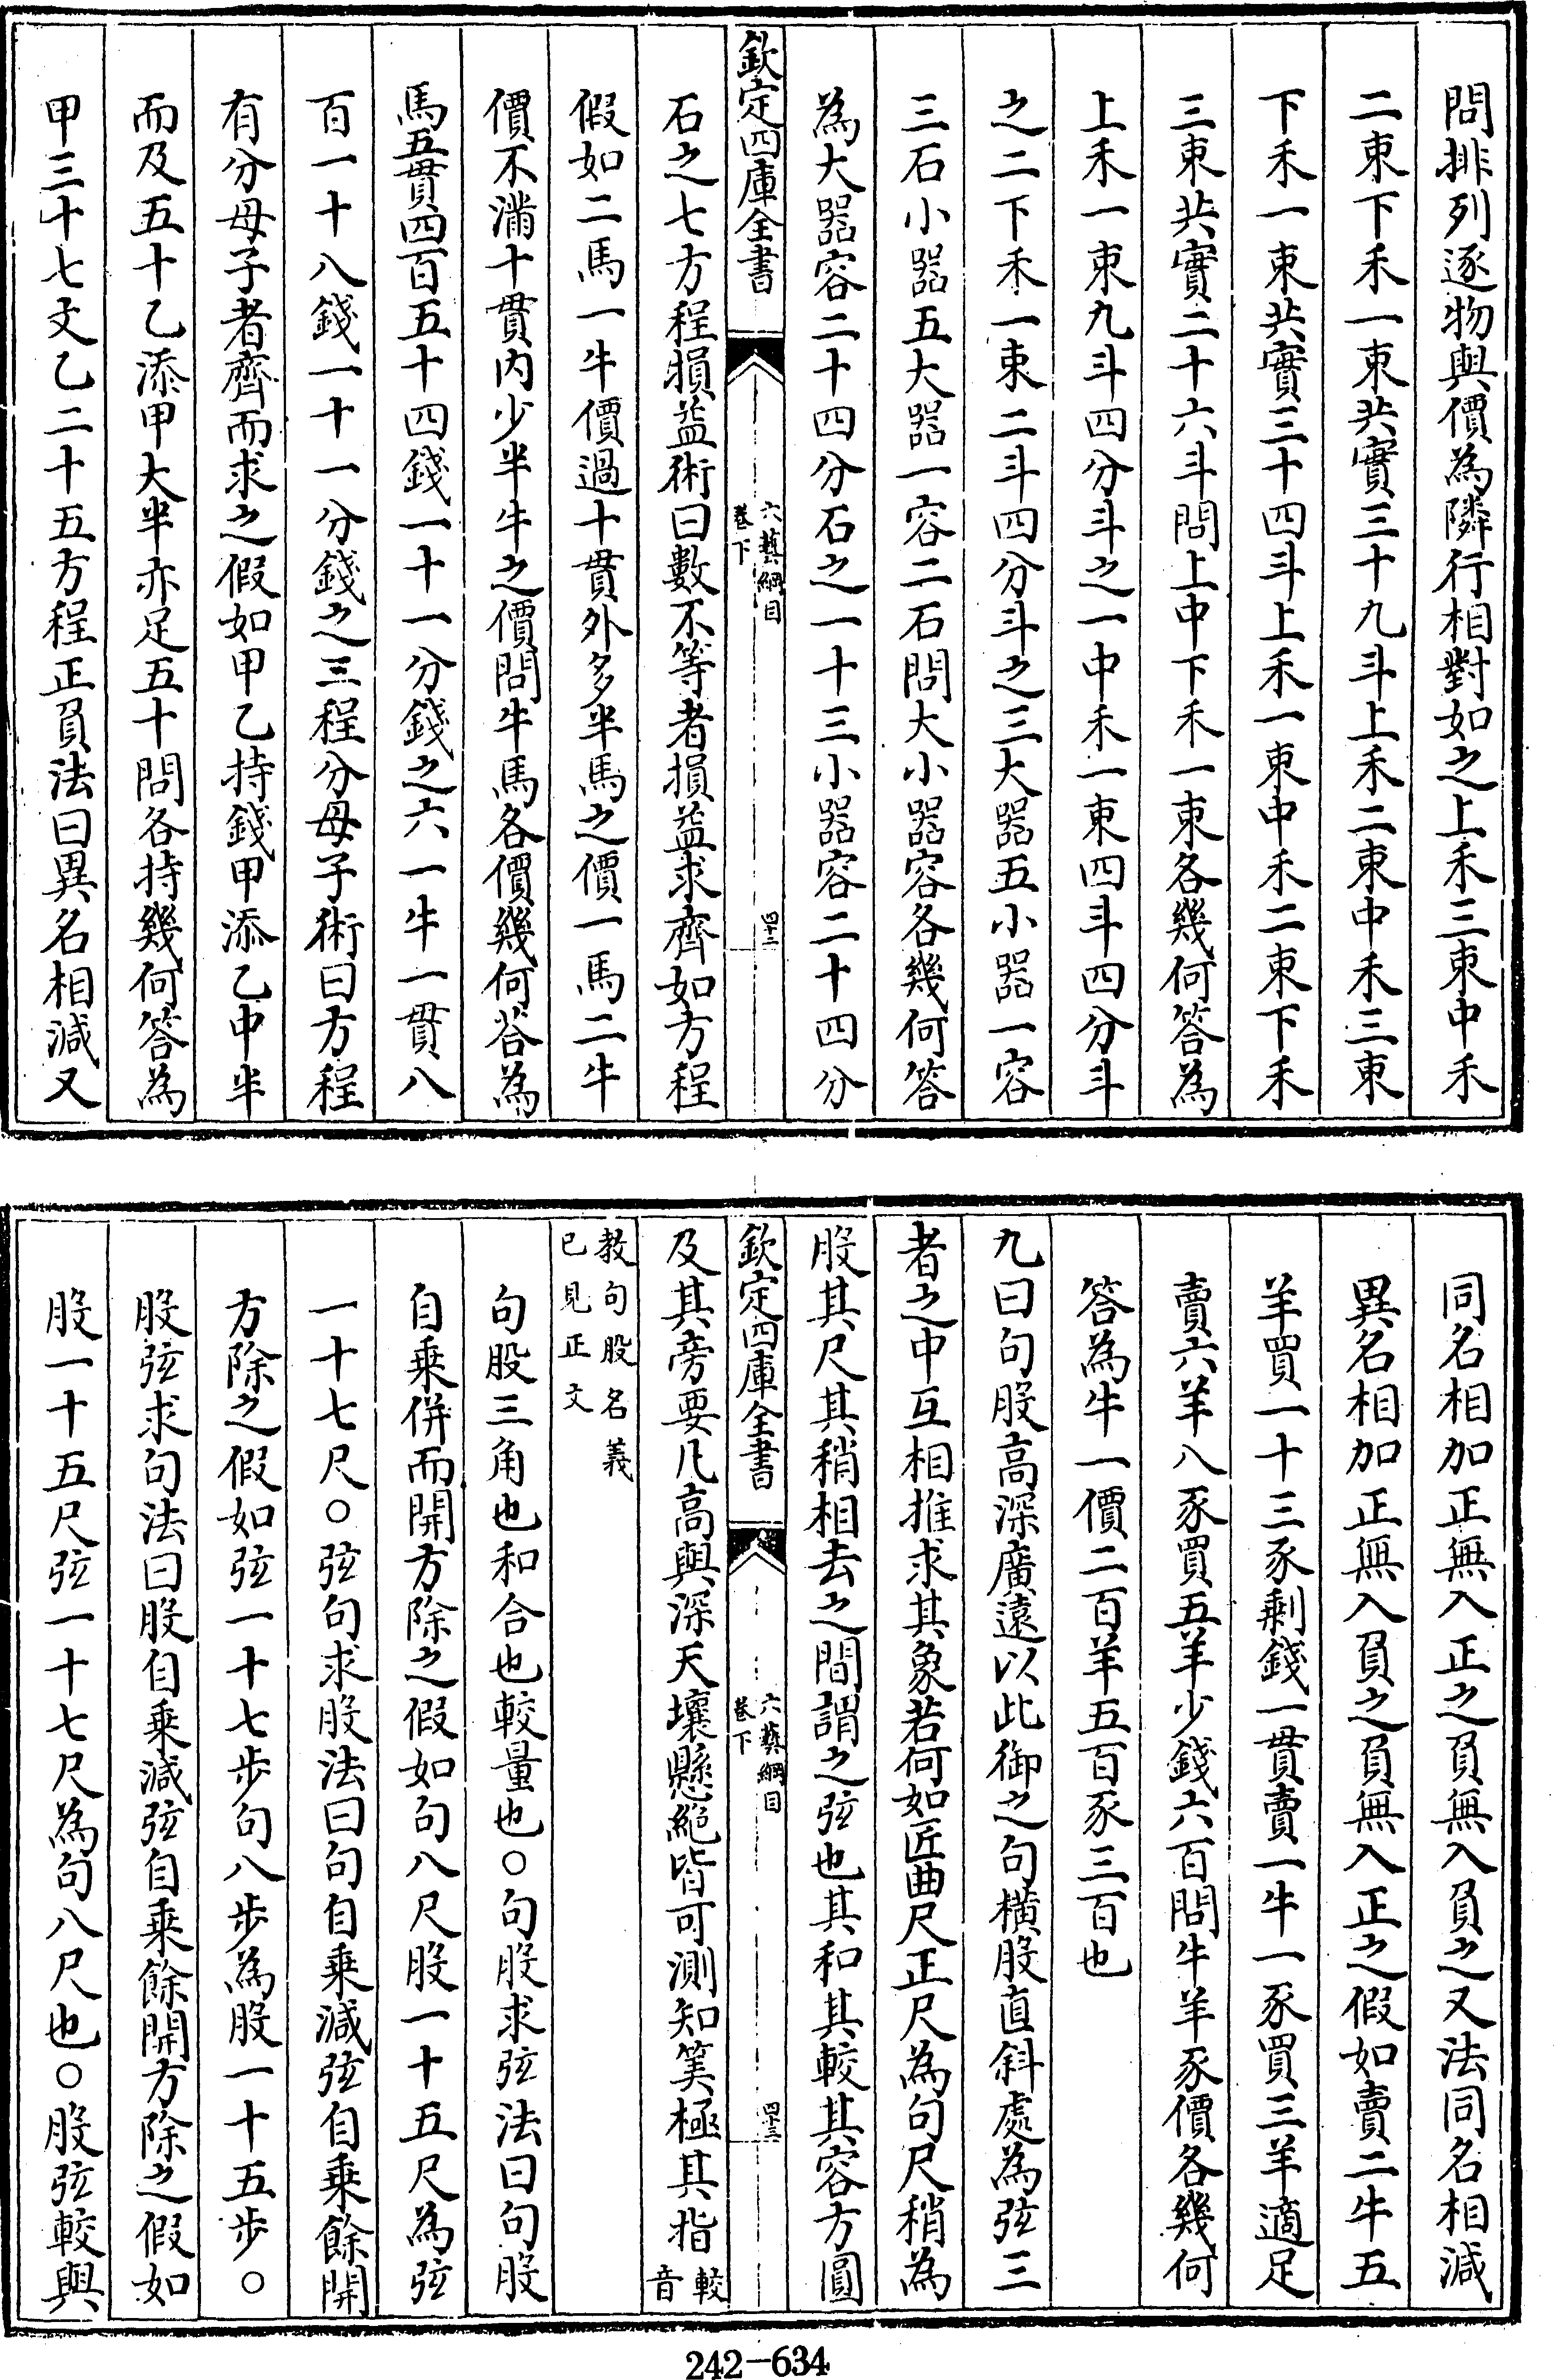 問排列逐物與價為隣行相對如之上禾三束中禾
二束下禾一束共實三十九斗上禾二束中禾三束
下禾一束共實三十四斗上禾一束中禾二束下禾
三束共實二十六斗問上中下禾一束各幾何答為
上禾一束九斗四分斗之一中禾一束四斗四分斗
之二下禾一束二斗四分斗之三大器五小器一容
三石小器五大器一容二石問大小器容各幾何答
為大器容二十四分石之一十三小器容二十四分
欽定四庫全書
六藝綱目
卷下
四十二
石之七方程損益術曰數不等者損益求齊如方程
假如二馬一牛價過十貫外多半馬之價一馬二牛
價不滿十貫内少半牛之價問牛馬各價幾何答為
馬五貫四百五十四錢一十一分錢之六一牛一貫八
百一十八錢一十一分錢之三程分母子術曰方程
有分母子者齊而求之假如甲乙持錢甲添乙中半
而及五十乙添甲大半亦足五十問各持幾何答為
甲三十七文乙二十五方程正負法曰異名相減又
同名相加正無入正之負無入負之又法同名相減
異名相加正無入負之負無入正之假如賣二牛五
羊買一十三豕剩錢一貫賣一牛一豕買三羊適足
賣六羊八豕買五羊少錢六百問牛羊豕價各幾何
答為牛一價二百羊五百豕三百也
九曰句股高深廣遠以此御之句橫股直斜處為弦三
者之中互相推求其象若何如匠曲尺正尺為句尺稍為
股其尺其稍相去之間謂之弦也其和其較其容方圓
欽定四庫全書
六藝綱目
卷下
四十三
及其旁要凡高與深天壤懸絶皆可測知筭極其指較
音
教句股名義
已見正文
句股三角也和合也較量也○句股求弦法曰句股
自乗併而開方除之假如句八尺股一十五尺為弦
一十七尺○弦句求股法曰句自乗減弦自乗餘開
方除之假如弦一十七步句八步為股一十五步○
股弦求句法曰股自乗減弦自乗餘開方除之假如
股一十五尺弦一十七尺為句八尺也○股弦較與
242-634